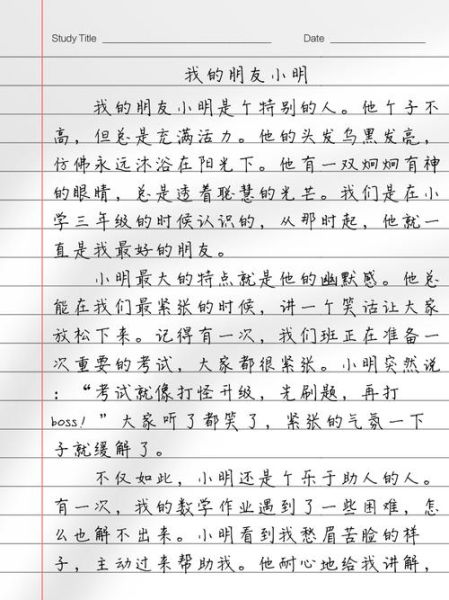 Study Title Date
我的朋友小明
我的朋友小明是个特别的人。他个子不
高，但总是充满活力。他的头发乌黑发亮，
仿佛永远沐浴在阳光下。他有一双炯炯有神
的眼睛，总是透着聪慧的光芒。我们是在小
学三年级的时候认识的，从那时起，他就一
直是我最好的朋友。
小明最大的特点就是他的幽默感。他总
能在我们最紧张的时候，讲一个笑话让大家
放松下来。记得有一次，我们班正在准备一
次重要的考试，大家都很紧张。小明突然说
：“考试就像打怪升级，先刷题，再打
boss！”大家听了都笑了，紧张的气氛一下
子就缓解了。
不仅如此，小明还是个乐于助人的人。
有一次，我的数学作业遇到了一些困难，怎
么也解不出来。小明看到我愁眉苦脸的样
子，主动过来帮助我。他耐心地给我讲解，